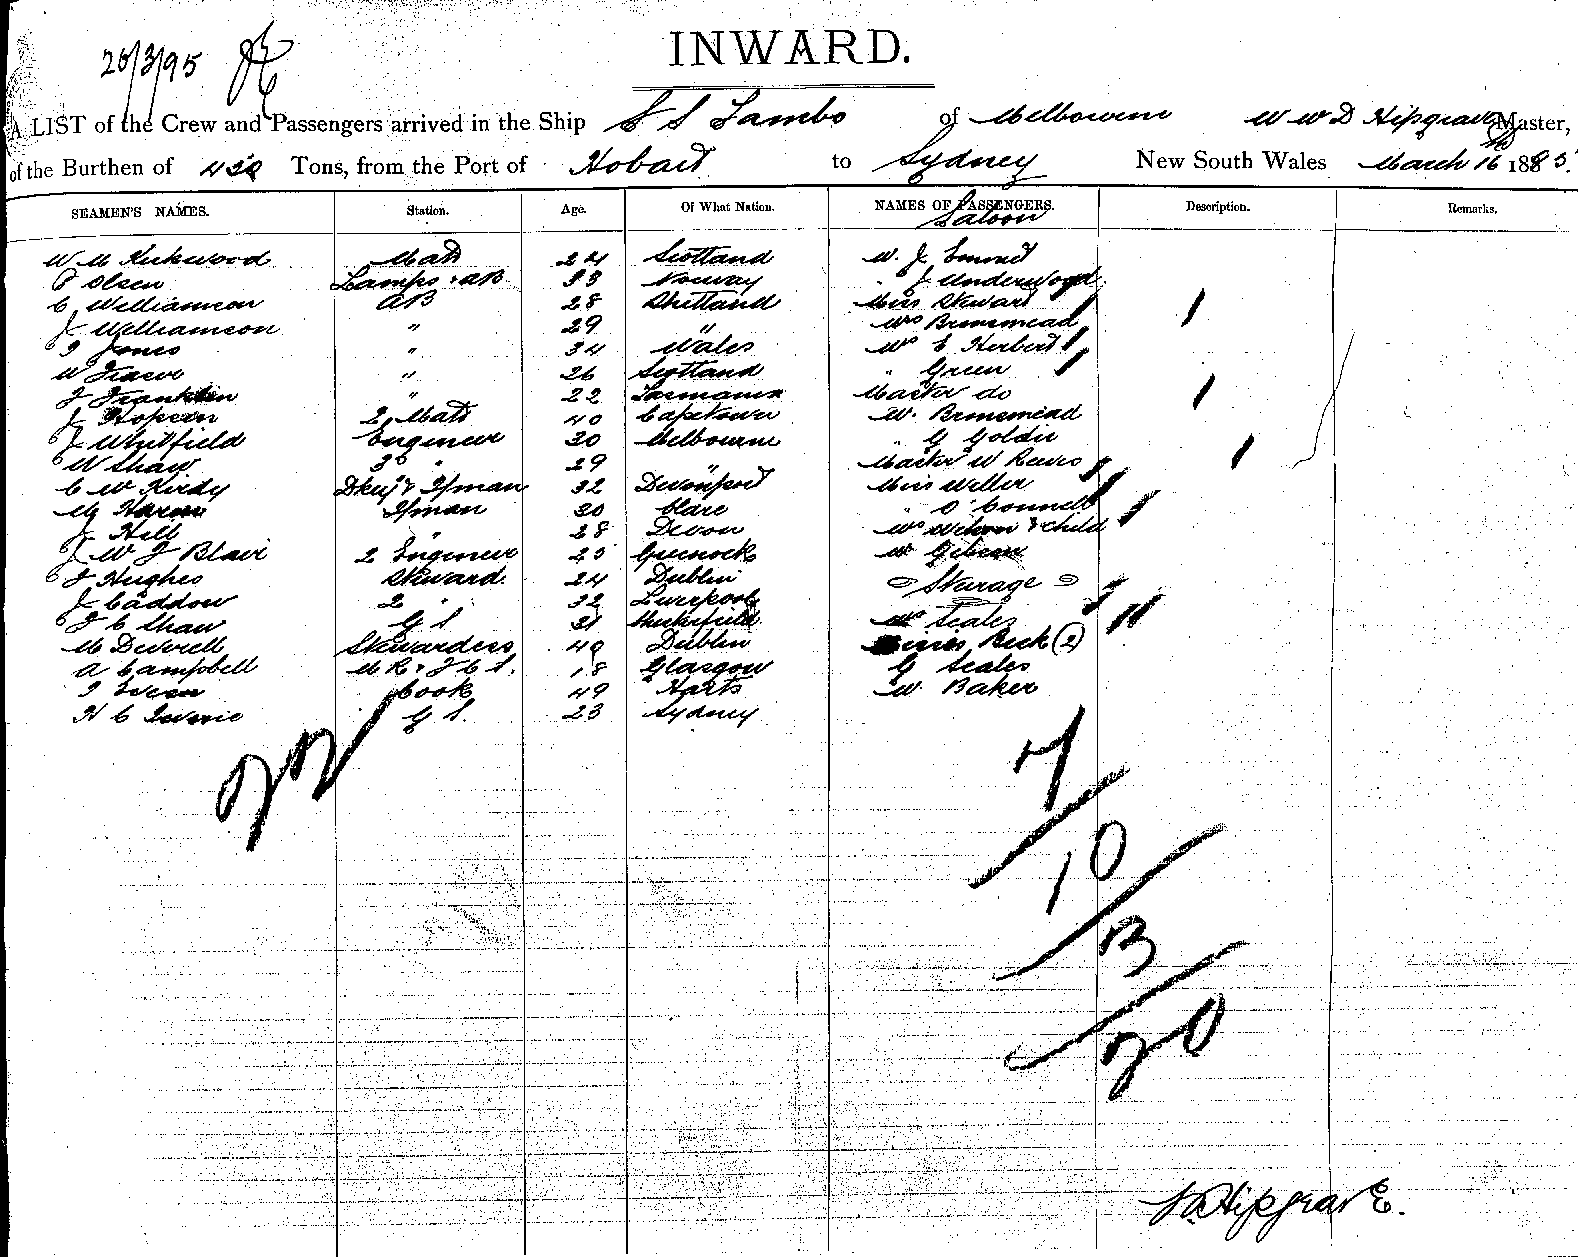 INWARD.
25/3/95
A LIST of the Crew and Passengers arrived in the Ship S S Tambo of Melbourne W W D Hipgrave Master,
of the Burthen of Tons, from the Port of Hobart to Sydney New South Wales March 16th 1885.
SEAMEN'S NAMES. Station. Age. Of What Nation. NAMES OF PASSENGERS. Description. Remarks.
Saloon
W M Kirkwood Mate 24 Scotland W. J.
P Olsen Lamps & AB 33 Norway " J Underwood
C Williamson AB 28 Shetland Miss Stewart
J Williamson " 29 " Mrs Brinsmead
T Jones " 34 Wales Mrs E Herbert
W Fraser " 26 Scotland " Green
J Franklin " 22 Tasmania Master do
J Hopson 2 Mate 40 Capetown W. Brinsmead
J Whitfield Engineer 30 Melbourne " G Goldie
W Shaw 3d " 29 " Master W Reeves
C W Kirdy Dkey & Fman 32 Devonport Miss Weller
M Fman 30 Clare " O'Connell
J Hill " 28 Devon Mrs Wilson & Child
J W J Blair 2 Engineer 25 Greenock W Gibson
J Hughes Steward 24 Dublin Sterage
J Caddow 2 " 32 Liverpool
J C Shaw G S 21 Mrs Scales
M Deverell Stewardess 40 Dublin Misses Beck (2)
A Campbell M R & F C S. 18 Glasgow G Scales
T Cook 49 Harts W. Baker
H C G S. 23 Sydney
22
7
10
3
20
W Hipgrave.